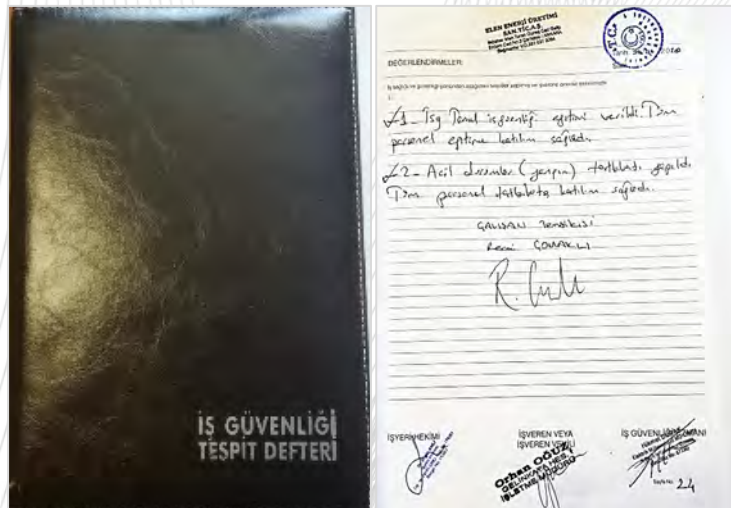 İŞ GÜVENLİĞİ
TESPİT DEFTERİ
ELEN ENERJİ ÜRETİMİ
SAN.TİC.A.Ş.
T.C.
DEĞERLENDİRMELER:
İş sağlığı ve güvenliği yönünden aşağıdaki
1- İsg Temel işgüvenliği eğitimi verildi. Tüm
personel eğitime katılım sağladı.
2- Acil durumlar (yangın) tatbikatı yapıldı
Tüm personel tatbikata katılım sağladı.
ÇALIŞAN Temsilcisi
ÇOMAKLI
İŞYERİ HEKİMİ
İŞVEREN VEYA
İŞVEREN VEKİLİ
Orhan OĞUZ
İŞLETME MÜDÜRÜ
İŞ GÜVENLİĞİ UZMANI
Sayfa No: 24